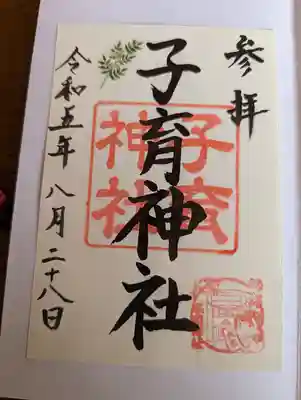 参拝
子育神社
子育神社
令和五年八月二十八日